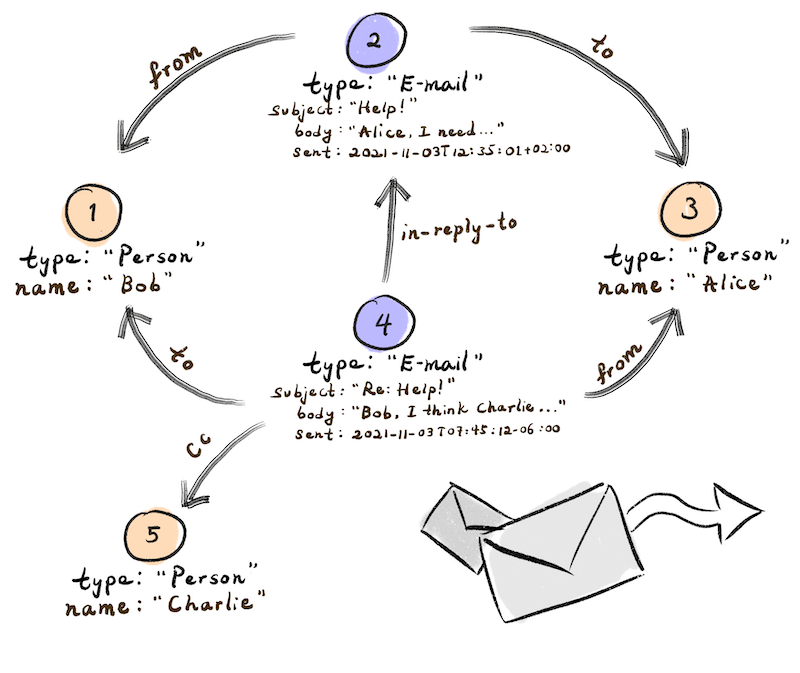 2
from
to
type: "E-mail"
subject: "Help!"
body: "Alice, I need..."
sent: 2021-11-03T12:35:01+02:00
1
type: "Person"
name: "Bob"
in-reply-to
3
type: "Person"
name: "Alice"
4
type: "E-mail"
subject: "Re: Help!"
body: "Bob, I think Charlie..."
sent: 2021-11-03T07:45:12-06:00
to
from
cc
5
type: "Person"
name: "Charlie"